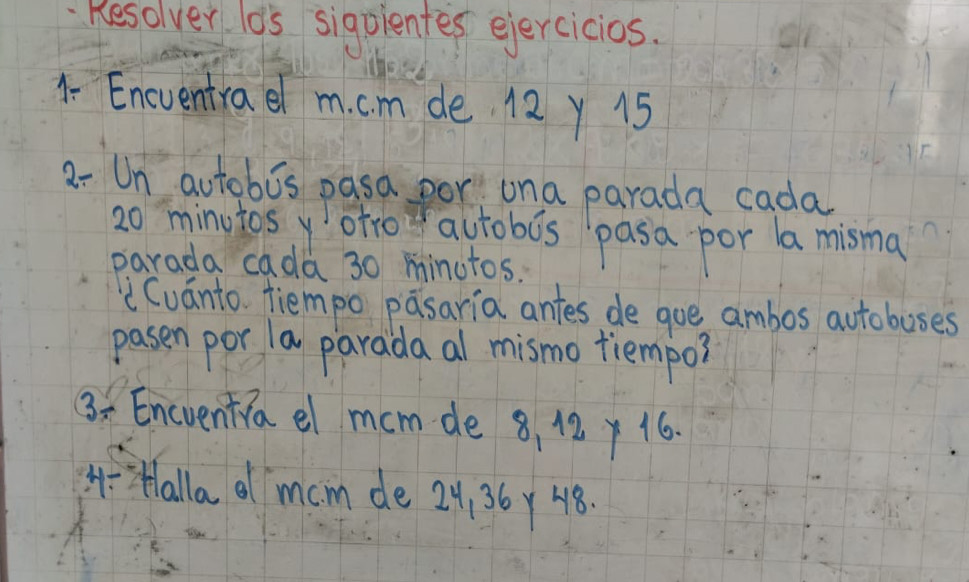 - Resolver los siguientes ejercicios.
1.- Encuentra el m.c.m de 12 y 15
2.- Un autobús pasa por una parada cada
20 minutos y otro autobús pasa por la misma
parada cada 30 minutos.
¿Cuánto tiempo pasaría antes de que ambos autobuses
pasen por la parada al mismo tiempo?
3.- Encuentra el mcm de 8, 12 y 16.
4.- Halla el mcm de 24, 36 y 48.